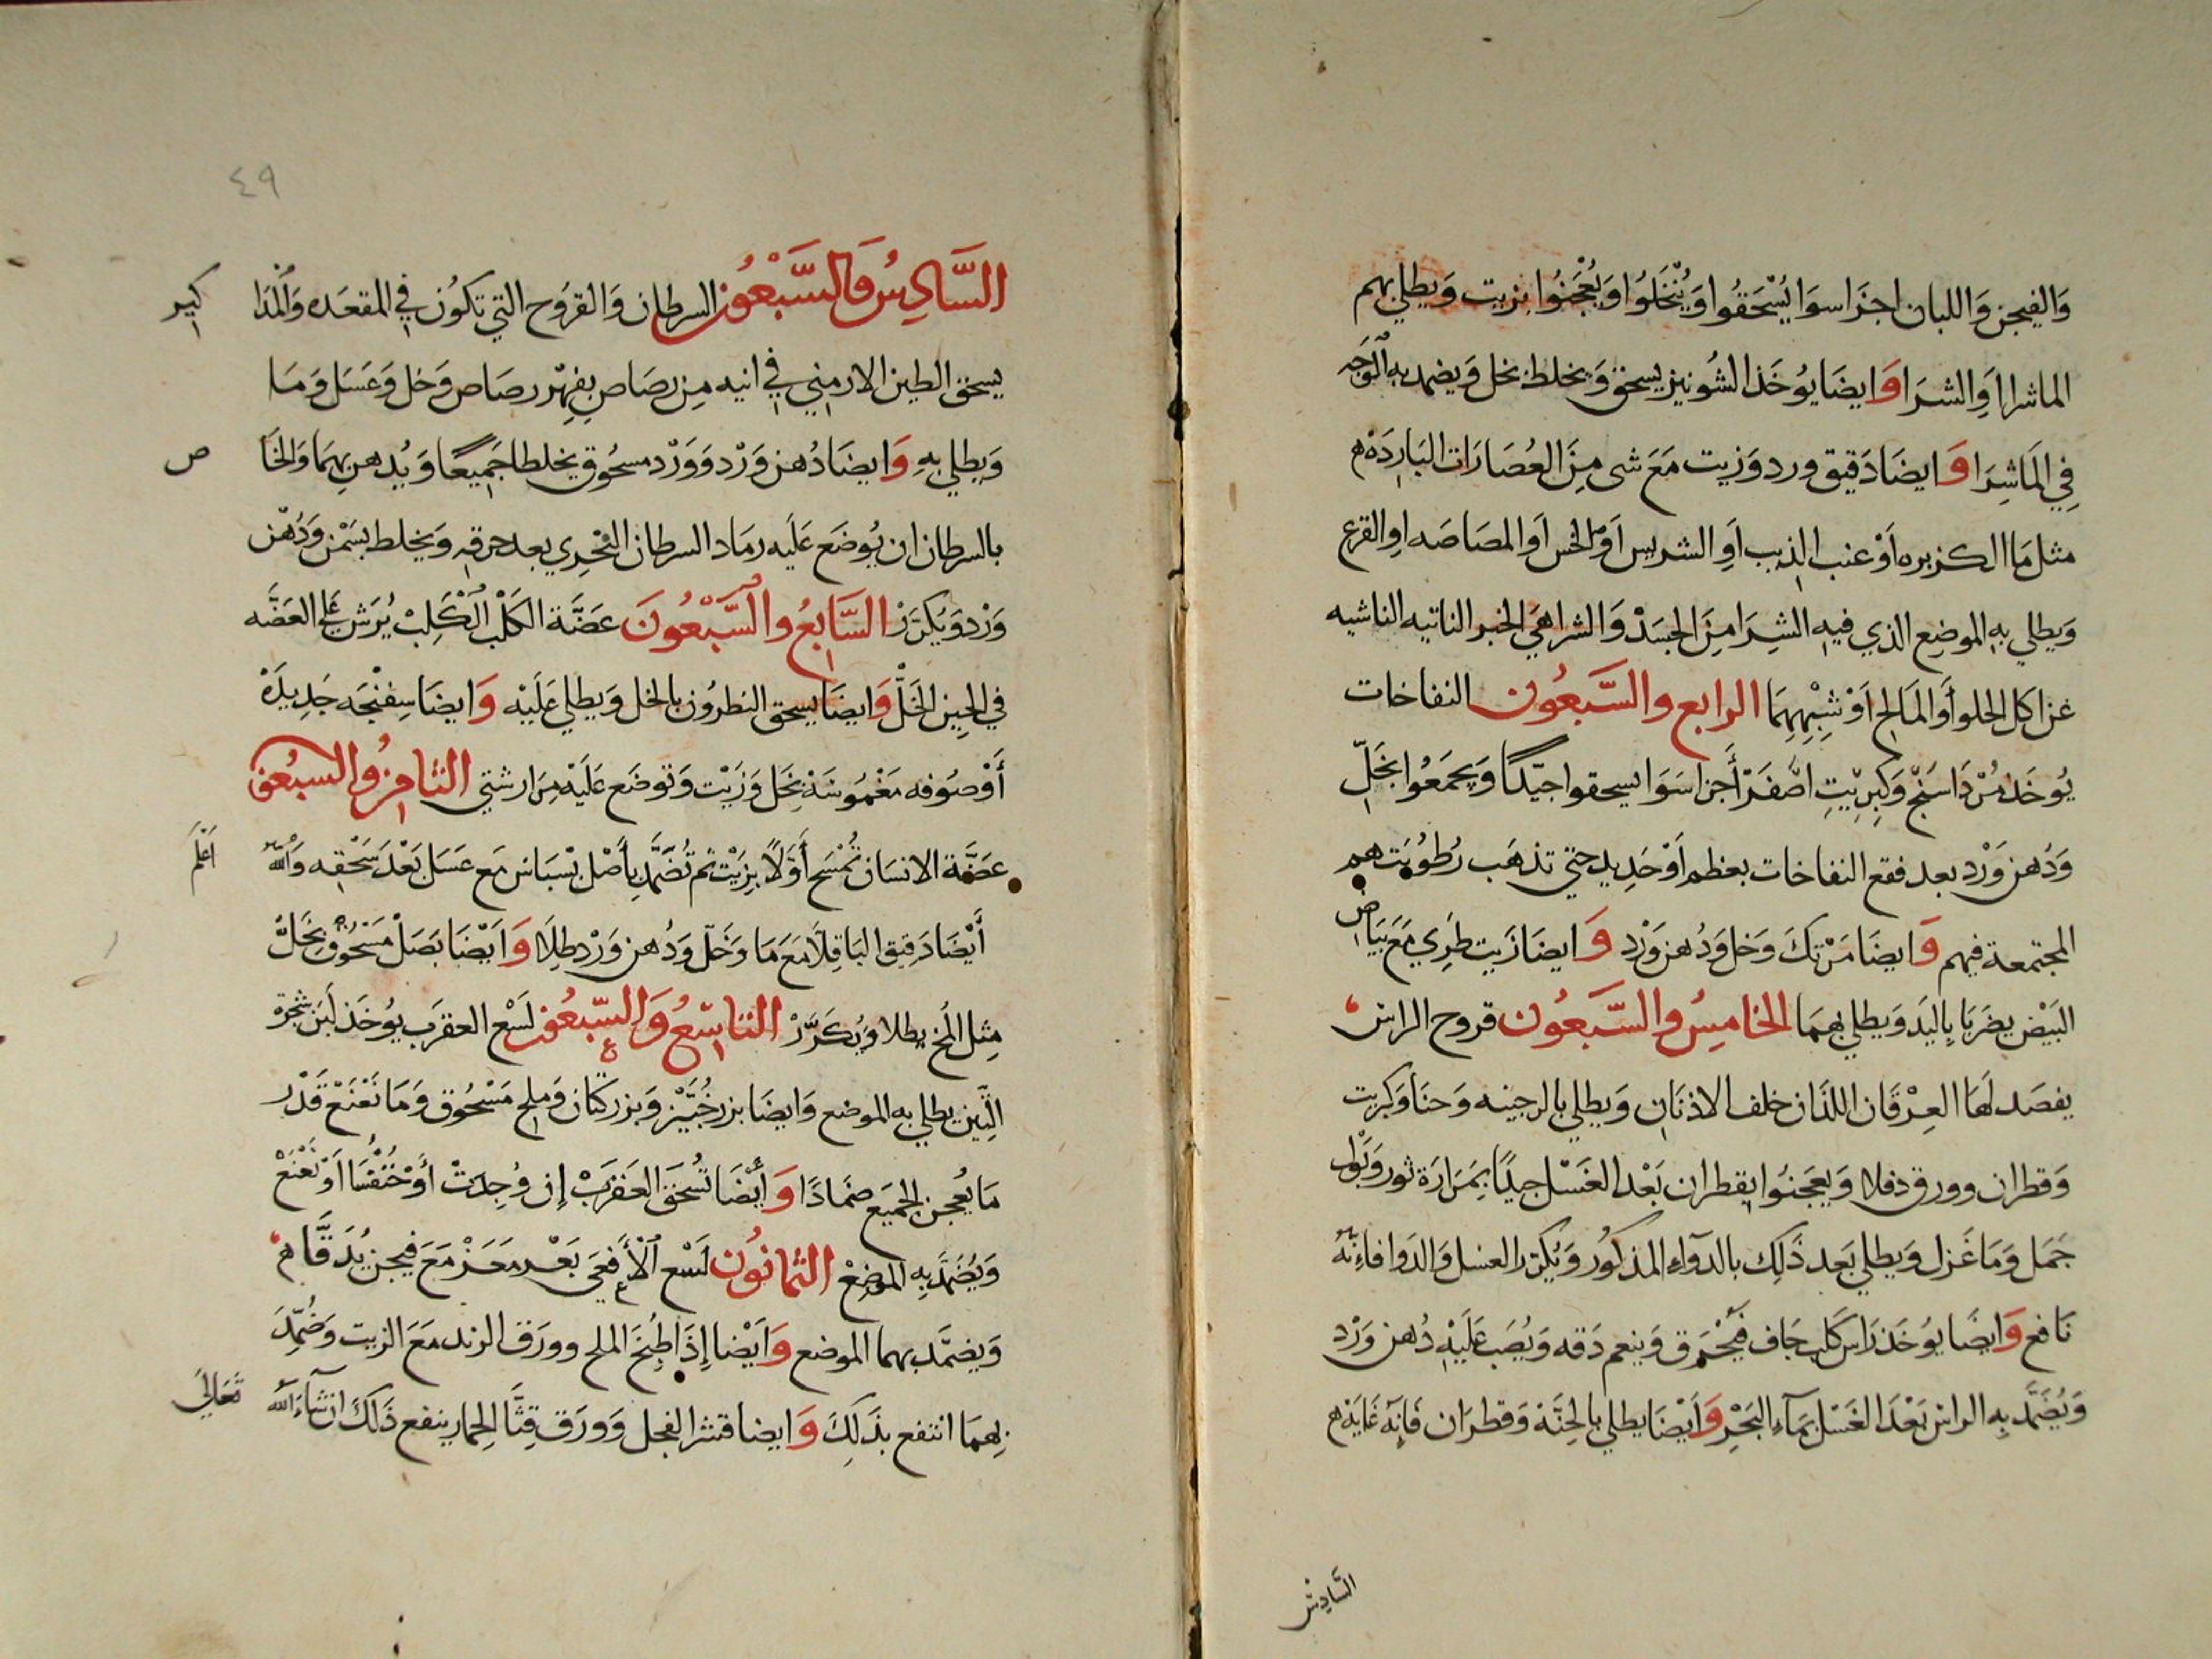 وَالفيجن وَاللبان اجزَا سوَا يُسْحَقُوا وَيُنْخَلوُا وَيُعْجَنُوُا بزيت وَيطلي بهم
الماشرا اَوِالشرَا وَايضَا يوُخَذ الشُونيز يسحق وَيخلط بخل وَيضمد به الوَجه
فِي المَاشِرَا وَايضَا دَقيق ورد وَزيت مَعَ شى مِنَ العُصَارَات البَارِدَه
مثل مَا الكزبره اَوْ عنب الذيب اَوِ الشريس اَوِ الخس اَوِ المصَاصَه اوِ القرع
وَيطلي بهِ الموضِع الذي فيهِ الشِرَا مِنَ الجسَدْ وَالشرا هِيَ الحَبر الناتيه الناشيه
عن اكل الحلو اَوَ المَالح اَوْ شِبْهِهِمَا الرابع والسَّبَعُون النفاخات
يُوخَذ مُرْدَاسَنْج وَكِبِريْتِ اصَّفَرْ أَجزا سَوَا يسحقوا جيّدًا وَيجمَعُوا بخَلّ
وَدُهن وَرْد بعد فقع النفاخات بعظم اَوْ حَدِيد حتي تذهَب رُطوُبَتهم
المجتمعة فيهم وَايضَا مَرْتكَ وَخل وَدُهن وَرْد وَايضَا زَيت طَرِي مَعَ بَيَاض
البَيْض يضرَبَا بِاليَد وَيطلي بهمَا الخامِسُ والسَّبَعُون قروح الراس
يفصَد لهَا العِرْقَان اللذَان خلف الاذنَانِ وَيطلي بالرجينه وَحنَا وَكبريت
وَقطران وورق دفلا وَيعجَنوُا بقطران بَعْد الغَسْل جيدًا بِمَرَارَة ثور وَبَوْل
جَمَل وَمَا غَزل وَيطلي بَعد ذَلِك بالدوَاء المذكوُر وَيُكرّر العسل وَالدَوا فاءنهُ
نَافع وَايضَا يوُخَذ رَاس كَلب جَاف فيُحْرَق وَينعم دَقه وَيُصَب عَليْهِ دُهن وَرْد
وَيُضَمَّد بِهِ الراس بَعْدَ الغَسْل بمَآءِ البَحْرِ وَأَيْضَا يطلي بالحِنَّة وَقطرَان فإنهَ غَايَه
السَّادِسُ
٤٩
السَّادِسُ وَالسَّبْعُون السرطان وَالقرُوح التي تكوُن في المقعَده وَالمذَا كير
يسحق الطين الارمني في انيه مِن رصَاصِ بِفِهِرْ رصَاص وَخل وَعَسَل وَمَا
وَيطلي بهِ وَايضَا دُهن وَرْد وَوَرْد مسحُوق يخلطا جَمِيعًا وَيُدهن بهمَا وَالخَا ص
بالسرطان ان يُوضَع عَلَيه رمَاد السرطان البَحْرِي بعد حرقِهِ وَيخلط بسَمْن وَدُهْن
وَرْد وَيُكرّرْ السَّابعُ والسَّبْعُونَ عَضَّة الكَلْب الكَلِبْ يُرَش عَلَي العَضَّه
في الحِين الخَلّ وَايضَا يسحق النطرُون بالخل وَيطلي عَلَيْه وَايضَا سِفنْجَه جَدِيدَة
أَوْ صُوفه مَغْمُوسَة بخل وَزَيْت وَتوضَع عَلَيْه مِرَارشتي الثامِنُ والسبعُون
عَضَّة الانسَان تُمْسَح أَوّلًا بِزَيْت ثم تُضمَّد بِأَصْل بَسْبَاس مَع عَسَل بَعْدَ سَحْقِه وَاللَّه اَعْلَم
أَيْضَا دَقيق البَاقِلَا مَعَ مَا وَخَلّ وَدُهن وَرْد طِلَا وَاَيْضَا بَصَل مَسْحُوق بِخَلّ
مِثِل المُخ يطلا وَيُكَرَّرْ التاسِعُ وَالسَّبعُون لَسْع العقرَب يوُخَذ لَبَن شجرة
التِّين يطلي به الموضع وَايضَا بزر خُبَّيْز وَبزر كتان وَملح مَسْحُوق وَمَا نَعْنَعْ قَدْر
مَا يُعجن الجَميَع ضمَادًا وَأَيْضَا تُسْحَق العَقرَبْ إِن وُجِدَتْ أَوْ خُنْفُسَا اَوْ نَعْنَعْ
وَيُضَمَّد بِهِ المَوْضِعْ الثمانوُن لَسْع الأَفعَي بَعْد مَعَرْ مَعَ فيجن يُدَقَّا
وَيضمَّد بهما الموضع وَاَيْضا إِذَا طُبِخَ الملح وورَق الرند مَعَ الزيت وَضُمِّدَ
بِهِمَا انتفع بذَلِكَ وَايضا قشر الفجل وَوَرَق قِثَّا الحِمار ينفع ذَلكَ ان شآءَ اللَّه تَعَالي